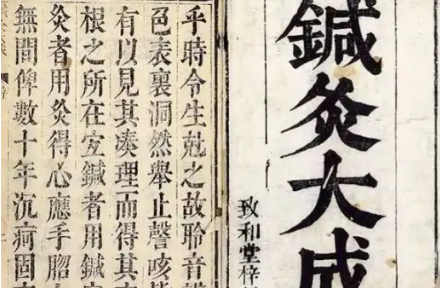 鍼灸大成
致和堂梓
乎時令生尅之故聆音
色表裏洞然舉止謦咳
有以見其湊理而得其
根之所在宐鍼者用鍼
灸者用灸得心應手
無間俾數十年沉疴固